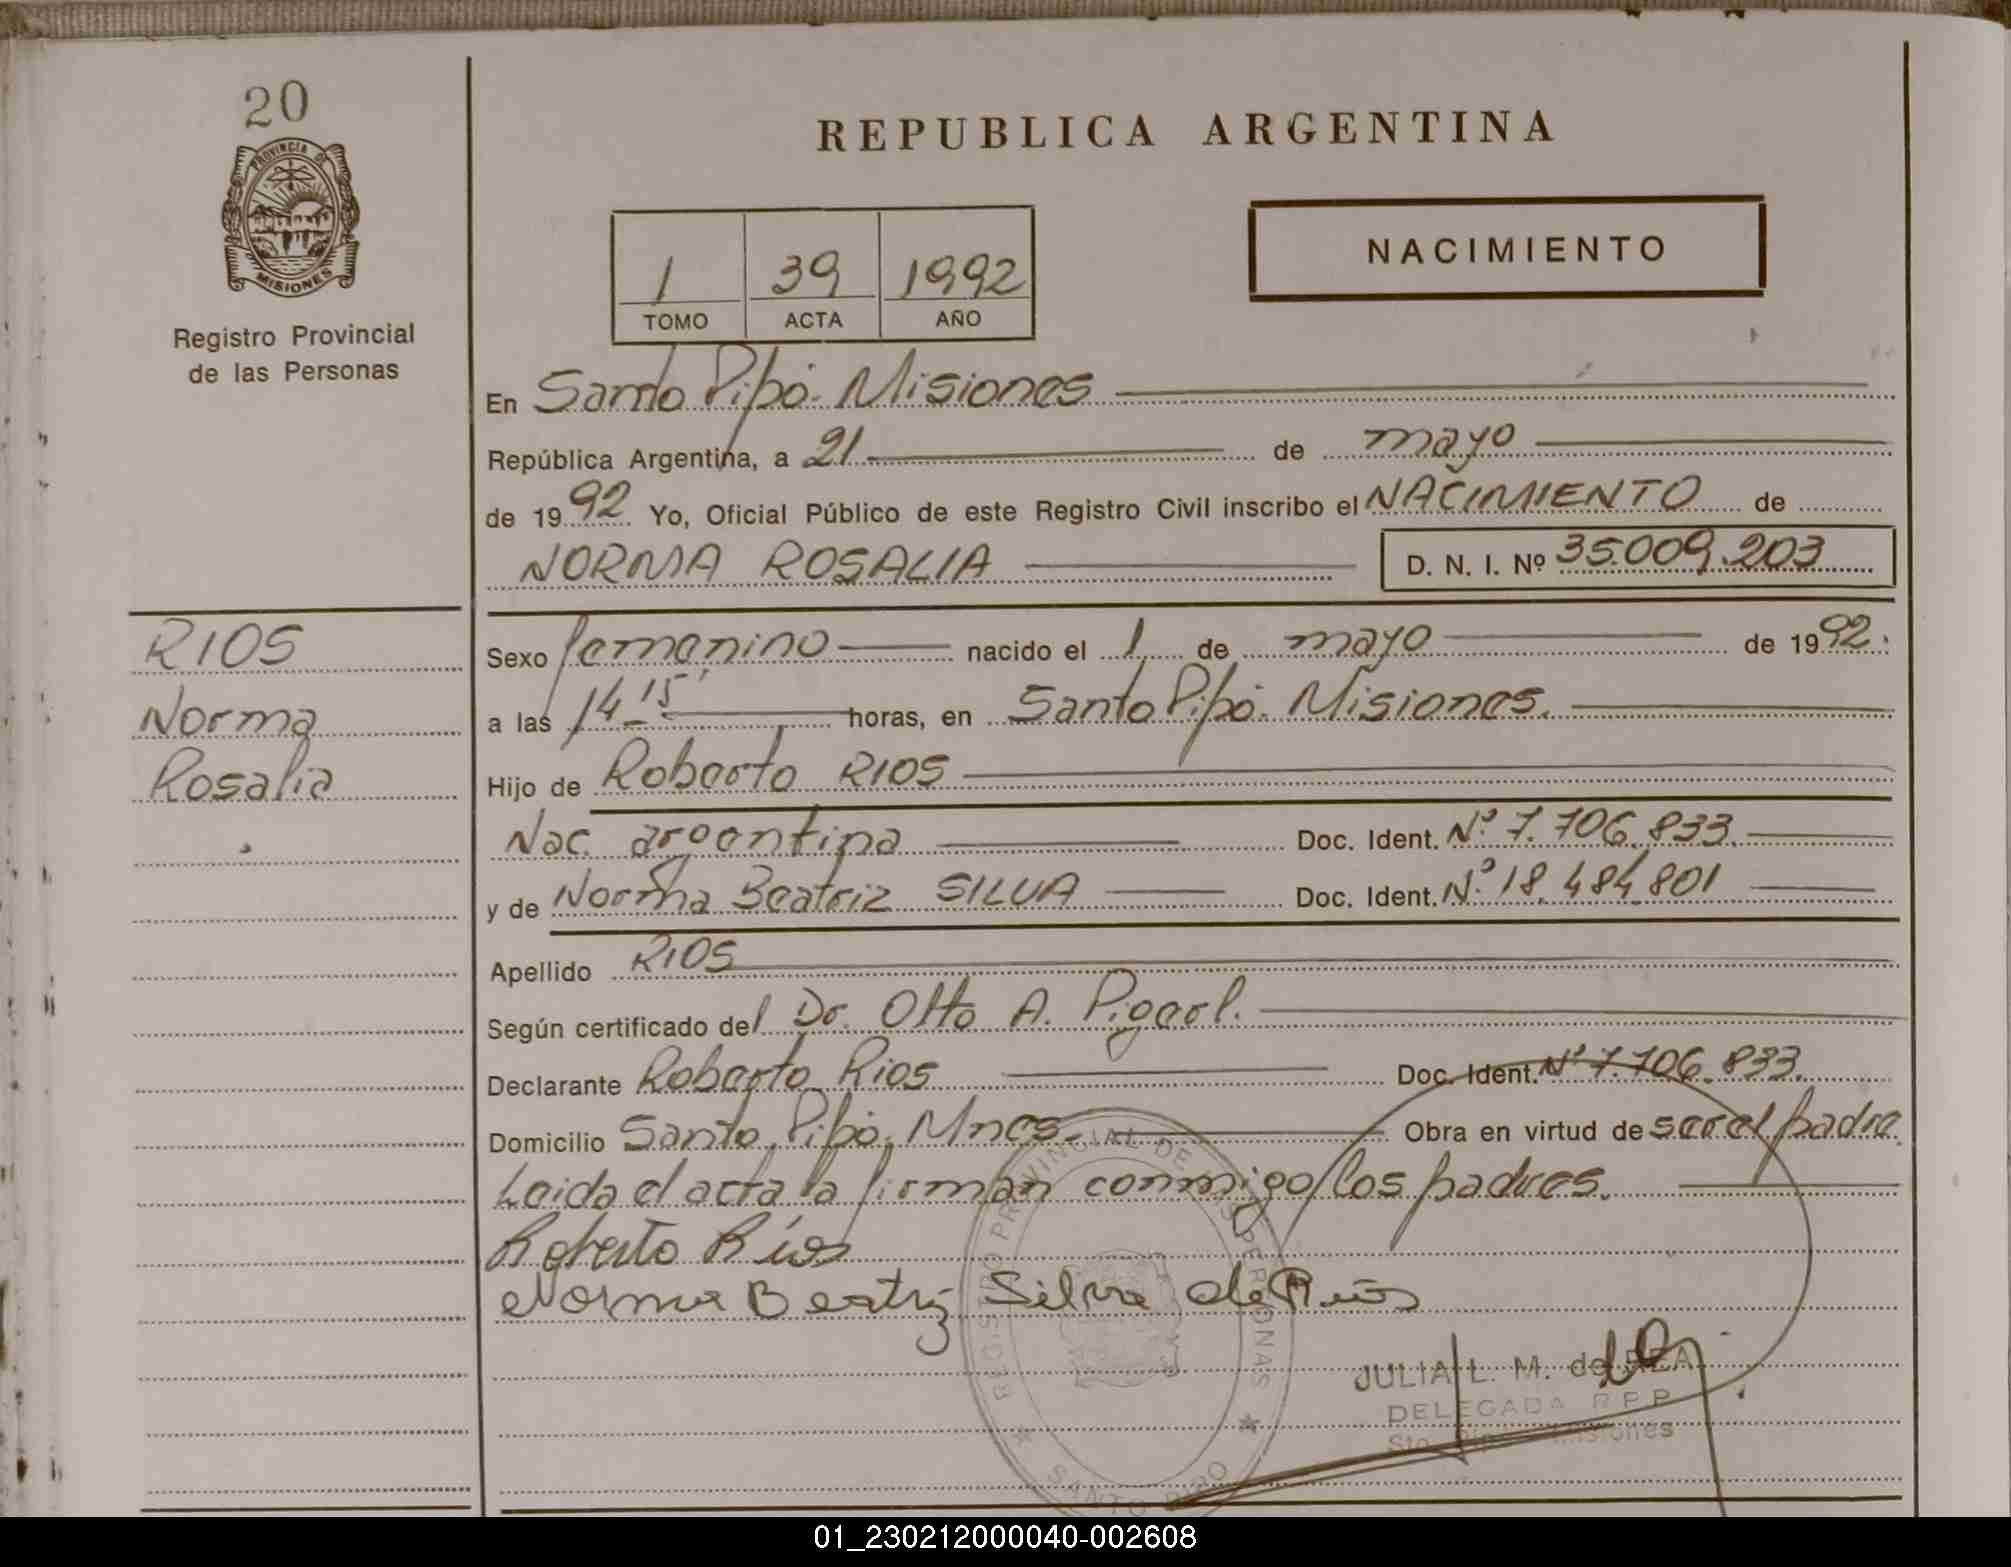 20
PROVINCIA DE
MISIONES
Registro Provincial
de las Personas
REPUBLICA ARGENTINA
NACIMIENTO
1 39 1992
TOMO ACTA AÑO
En Santo Pipó. Misiones
República Argentina, a 21 de mayo
de 1992 Yo, Oficial Público de este Registro Civil inscribo el NACIMIENTO de
NORMA ROSALIA D. N. I. Nº 35.009.203
RIOS
Norma
Rosalia
Sexo femenino nacido el 1 de mayo de 1992.
a las 14 15 horas, en Santo Pipó. Misiones.
Hijo de Roberto RIOS
Nac. argentina Doc. Ident. Nº 7.706.833.
y de Norma Beatriz SILVA Doc. Ident. Nº 18.484.801
Apellido RIOS
Según certificado del Dr. Otto A.
Declarante Roberto Rios Doc. Ident. Nº 7.706.833.
Domicilio Santo Pipó. Mnes. Obra en virtud de ser el padre.
Leida el acta la firman conmigo los padres.
Roberto Ríos
Norma Beatriz Silva de Ríos
REGISTRO PROVINCIAL DE LAS PERSONAS
SANTO PIPO
JULIA L. M. de
DELEGADA R.P.P.
Sto. Misiones
01_230212000040-002608